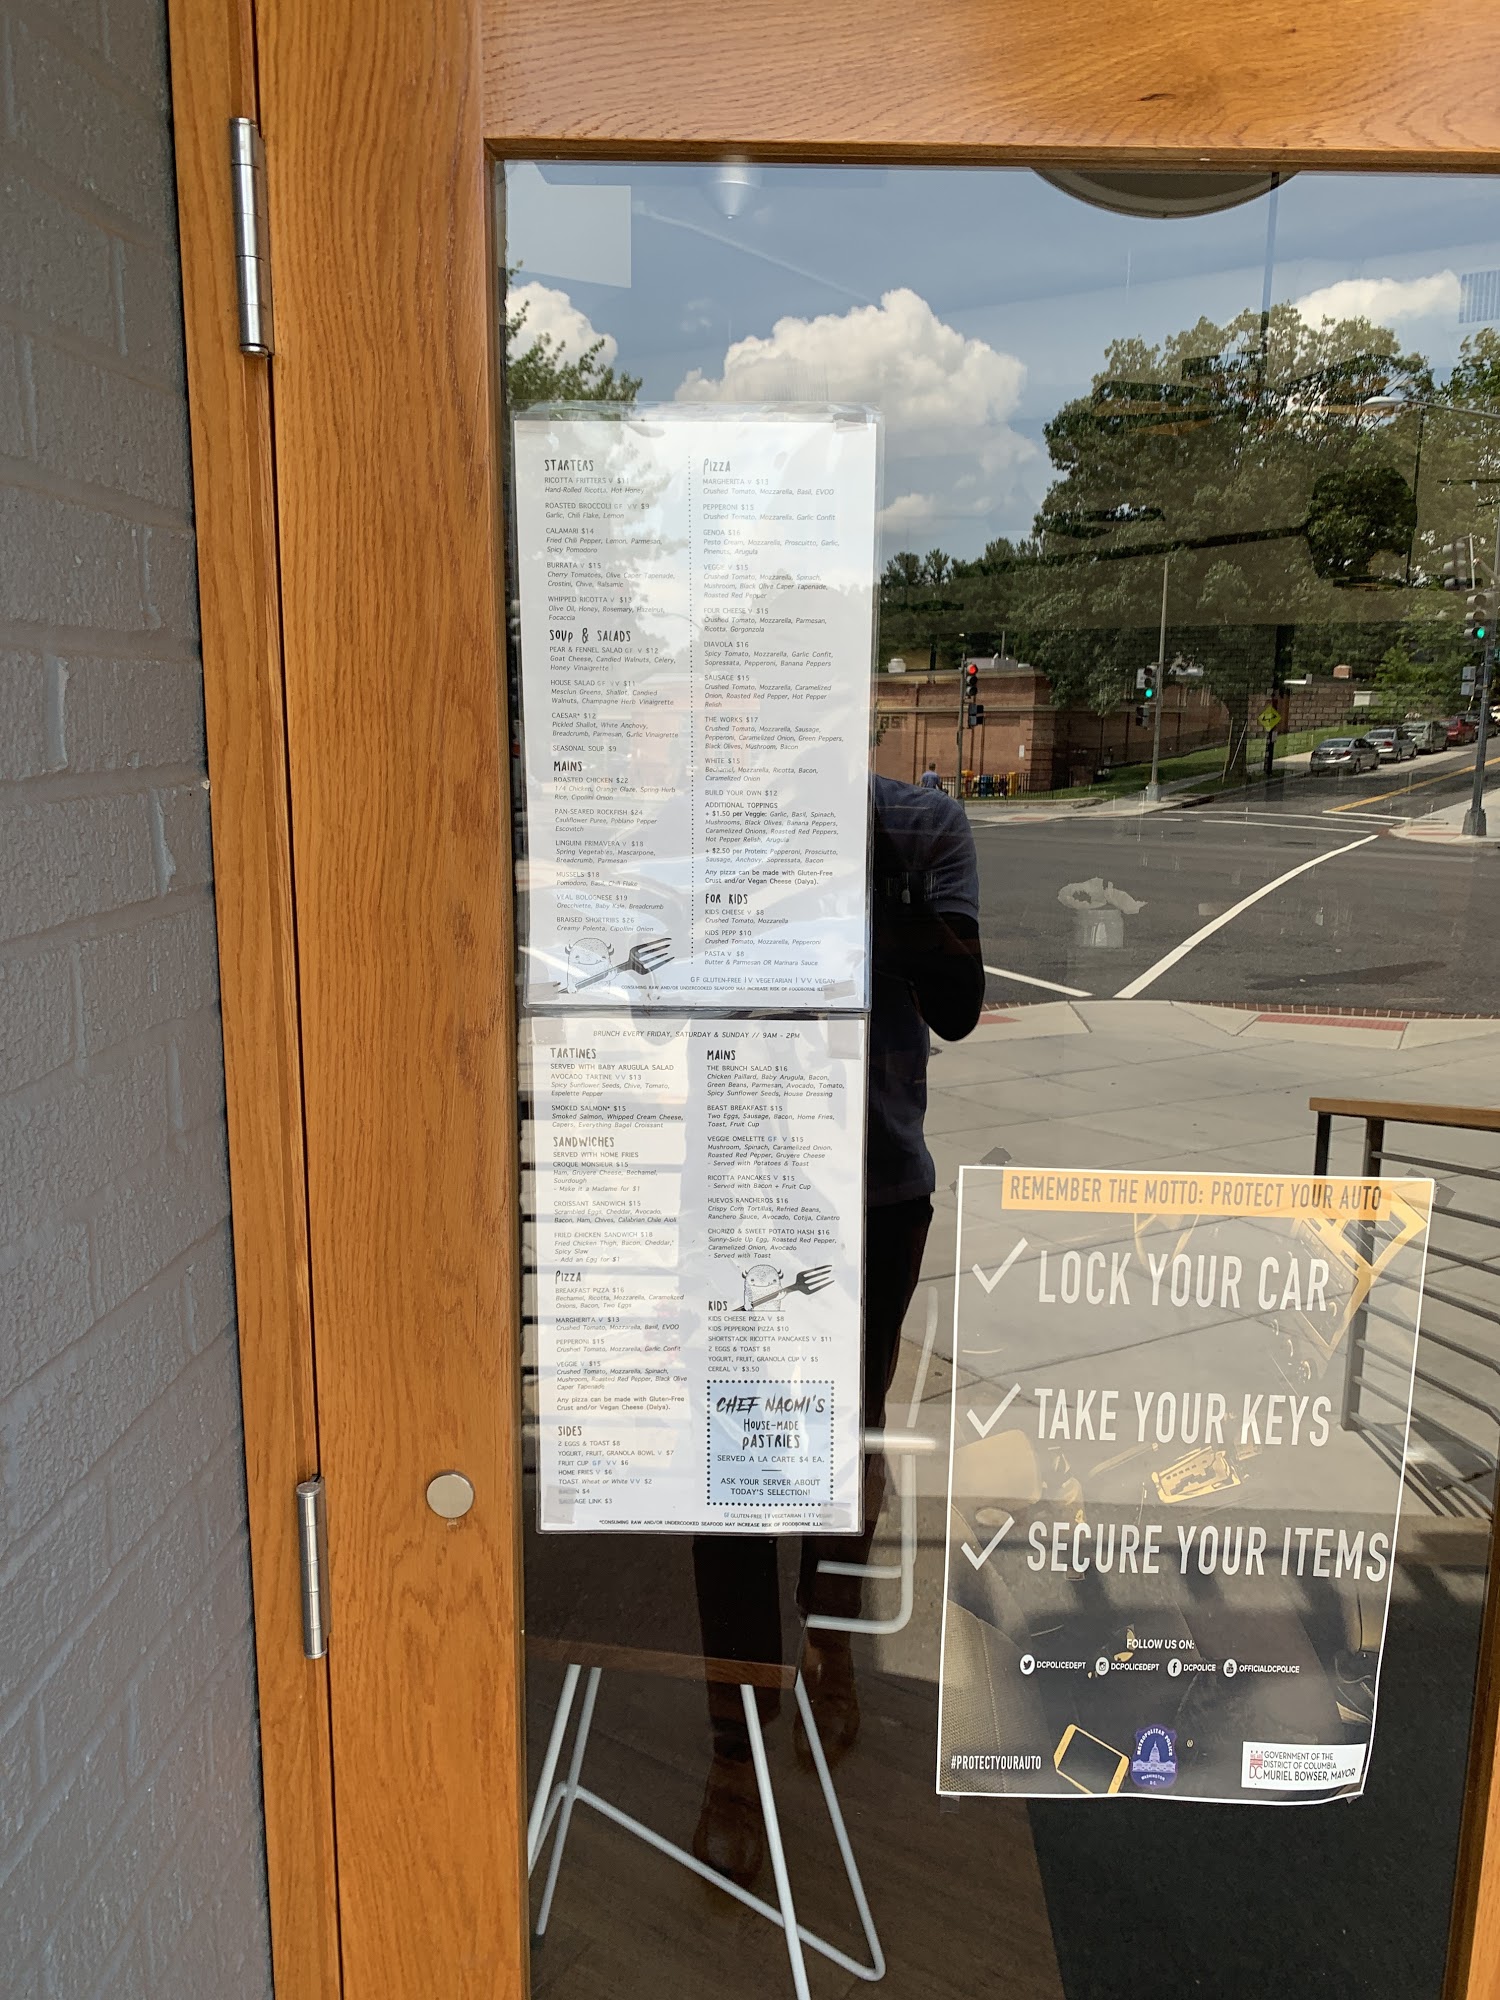 STARTERS
RICOTTA FRITTERS V $11
Hand-Rolled Ricotta, Hot Honey
ROASTED BROCCOLI GF VV $9
Garlic, Chili Flake, Lemon
CALAMARI $14
Fried Chili Pepper, Lemon, Parmesan,
Spicy Pomodoro
BURRATA V $15
Cherry Tomatoes, Olive Caper Tapenade,
Crostini, Chive, Balsamic
WHIPPED RICOTTA V $13
Olive Oil, Honey, Rosemary, Hazelnut,
Focaccia
SOUP & SALADS
PEAR & FENNEL SALAD GF V $12
Goat Cheese, Candied Walnuts, Celery,
Honey Vinaigrette
HOUSE SALAD GF VV $11
Mesclun Greens, Shallot, Candied
Walnuts, Champagne Herb Vinaigrette
CAESAR* $12
Pickled Shallot, White Anchovy,
Breadcrumb, Parmesan, Garlic Vinaigrette
SEASONAL SOUP $9
MAINS
ROASTED CHICKEN $22
1/4 Chicken, Orange Glaze, Spring Herb
Rice, Cipolini Onion
PAN-SEARED ROCKFISH $24
Cauliflower Puree, Poblano Pepper
Escovitch
LINGUINI PRIMAVERA V $18
Spring Vegetables, Mascarpone,
Breadcrumb, Parmesan
MUSSELS $18
Pomodoro, Basil, Chili Flake
VEAL BOLOGNESE $19
Orecchiette, Baby Kale, Breadcrumb
BRAISED SHORTRIBS $26
Creamy Polenta, Cipolini Onion
PIZZA
MARGHERITA V $13
Crushed Tomato, Mozzarella, Basil, EVOO
PEPPERONI $15
Crushed Tomato, Mozzarella, Garlic Confit
GENOA $16
Pesto Cream, Mozzarella, Proscuitto, Garlic,
Pinenuts, Arugula
VEGGIE V $15
Crushed Tomato, Mozzarella, Spinach,
Mushroom, Black Olive Caper Tapenade,
Roasted Red Pepper
FOUR CHEESE V $15
Crushed Tomato, Mozzarella, Parmesan,
Ricotta, Gorgonzola
DIAVOLA $16
Spicy Tomato, Mozzarella, Garlic Confit,
Sopressata, Pepperoni, Banana Peppers
SAUSAGE $15
Crushed Tomato, Mozzarella, Caramelized
Onion, Roasted Red Pepper, Hot Pepper
Relish
THE WORKS $17
Crushed Tomato, Mozzarella, Sausage,
Pepperoni, Caramelized Onion, Green Peppers,
Black Olives, Mushroom, Bacon
WHITE $15
Bechamel, Mozzarella, Ricotta, Bacon,
Caramelized Onion
BUILD YOUR OWN $12
ADDITIONAL TOPPINGS
+ $1.50 per Veggie: Garlic, Basil, Spinach,
Mushrooms, Black Olives, Banana Peppers,
Caramelized Onions, Roasted Red Peppers,
Hot Pepper Relish, Arugula
+ $2.50 per Protein: Pepperoni, Prosciutto,
Sausage, Anchovy, Sopressata, Bacon
Any pizza can be made with Gluten-Free
Crust and/or Vegan Cheese (Daiya).
FOR KIDS
KIDS CHEESE V $8
Crushed Tomato, Mozzarella
KIDS PEPP $10
Crushed Tomato, Mozzarella, Pepperoni
PASTA V $8
Butter & Parmesan OR Marinara Sauce
GF GLUTEN-FREE | V VEGETARIAN | VV VEGAN
CONSUMING RAW AND/OR UNDERCOOKED SEAFOOD MAY INCREASE RISK OF FOODBORNE ILLNESS
BRUNCH EVERY FRIDAY, SATURDAY & SUNDAY // 9AM - 2PM
TARTINES
SERVED WITH BABY ARUGULA SALAD
AVOCADO TARTINE VV $13
Spicy Sunflower Seeds, Chive, Tomato,
Espelette Pepper
SMOKED SALMON* $15
Smoked Salmon, Whipped Cream Cheese,
Capers, Everything Bagel Croissant
SANDWICHES
SERVED WITH HOME FRIES
CROQUE MONSIEUR $15
Ham, Gruyere Cheese, Bechamel,
Sourdough
- Make it a Madame for $1
CROISSANT SANDWICH $15
Scrambled Eggs, Cheddar, Avocado,
Bacon, Ham, Chives, Calabrian Chile Aioli
FRIED CHICKEN SANDWICH $18
Fried Chicken Thigh, Bacon, Cheddar,
Spicy Slaw
- Add an Egg for $1
PIZZA
BREAKFAST PIZZA $16
Bechamel, Ricotta, Mozzarella, Caramelized
Onions, Bacon, Two Eggs
MARGHERITA V $13
Crushed Tomato, Mozzarella, Basil, EVOO
PEPPERONI $15
Crushed Tomato, Mozzarella, Garlic Confit
VEGGIE V $15
Crushed Tomato, Mozzarella, Spinach,
Mushroom, Roasted Red Pepper, Black Olive
Caper Tapenade
Any pizza can be made with Gluten-Free
Crust and/or Vegan Cheese (Daiya).
SIDES
2 EGGS & TOAST $8
YOGURT, FRUIT, GRANOLA BOWL V $7
FRUIT CUP GF VV $6
HOME FRIES V $6
TOAST Wheat or White VV $2
BACON $4
SAUSAGE LINK $3
MAINS
THE BRUNCH SALAD $16
Chicken Paillard, Baby Arugula, Bacon,
Green Beans, Parmesan, Avocado, Tomato,
Spicy Sunflower Seeds, House Dressing
BEAST BREAKFAST $15
Two Eggs, Sausage, Bacon, Home Fries,
Toast, Fruit Cup
VEGGIE OMELETTE GF V $15
Mushroom, Spinach, Caramelized Onion,
Roasted Red Pepper, Gruyere Cheese
- Served with Potatoes & Toast
RICOTTA PANCAKES V $15
- Served with Bacon + Fruit Cup
HUEVOS RANCHEROS $16
Crispy Corn Tortillas, Refried Beans,
Ranchero Sauce, Avocado, Cotija, Cilantro
CHORIZO & SWEET POTATO HASH $16
Sunny-Side Up Egg, Roasted Red Pepper,
Caramelized Onion, Avocado
- Served with Toast
KIDS
KIDS CHEESE PIZZA V $8
KIDS PEPPERONI PIZZA $10
SHORTSTACK RICOTTA PANCAKES V $11
2 EGGS & TOAST $8
YOGURT, FRUIT, GRANOLA CUP V $5
CEREAL V $3.50
CHEF NAOMI'S
HOUSE-MADE
PASTRIES
SERVED A LA CARTE $4 EA.
ASK YOUR SERVER ABOUT
TODAY'S SELECTION!
GF GLUTEN-FREE | V VEGETARIAN | VV VEGAN
*CONSUMING RAW AND/OR UNDERCOOKED SEAFOOD MAY INCREASE RISK OF FOODBORNE ILLNESS
REMEMBER THE MOTTO: PROTECT YOUR AUTO
LOCK YOUR CAR
TAKE YOUR KEYS
SECURE YOUR ITEMS
FOLLOW US ON:
DCPOLICEDEPT DCPOLICEDEPT DCPOLICE OFFICIALDCPOLICE
#PROTECTYOURAUTO
METROPOLITAN POLICE
WASHINGTON
D.C.
GOVERNMENT OF THE
DISTRICT OF COLUMBIA
DC MURIEL BOWSER, MAYOR